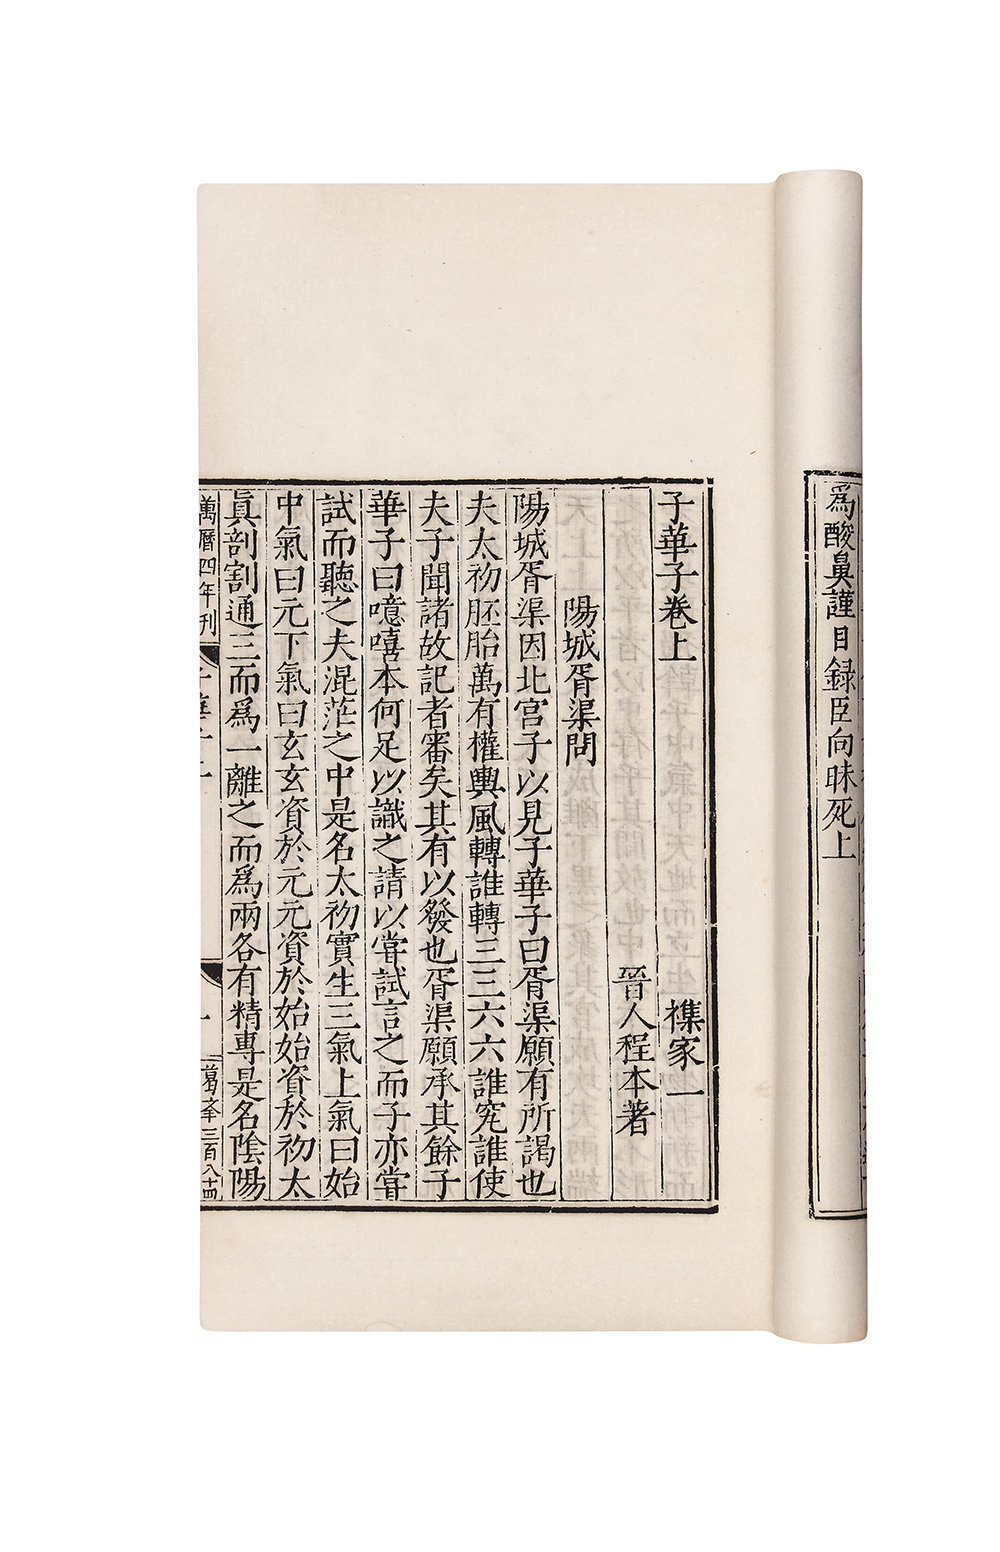 爲酸鼻謹目録臣向昧死上
子華子卷上 襍家一
晉人程本著
陽城胥渠問
陽城胥渠因北宮子以見子華子曰胥渠願有所謁也
夫太初胚胎萬有權輿風轉誰轉三三六六誰究誰使
夫子聞諸故記者審矣其有以發也胥渠願承其餘子
華子曰噫嘻本何足以識之請以嘗試言之而子亦嘗
試而聽之夫混茫之中是名太初實生三氣上氣曰始
中氣曰元下氣曰玄玄資於元元資於始始資於初太
真剖割通三而爲一離之而爲兩各有精專是名陰陽
萬曆四年刊